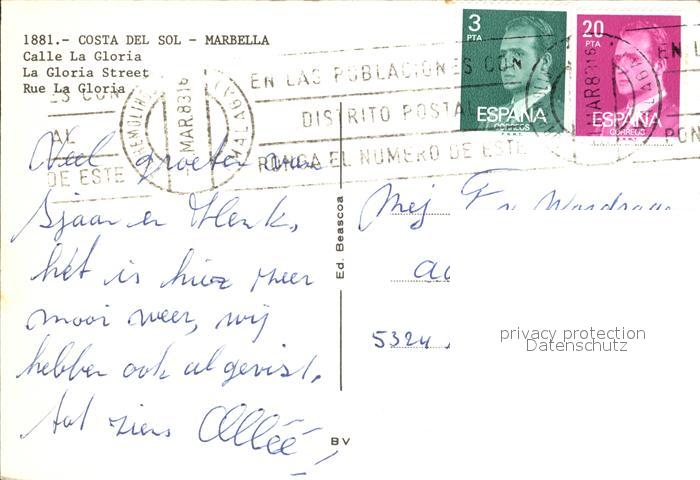 1881.- COSTA DEL SOL - MARBELLA
Calle La Gloria
La Gloria Street
Rue La Gloria
3
PTA
ESPAÑA
CORREOS
20
PTA
ESPAÑA
CORREOS
EN LAS POBLACIONES CON
DISTRITO POSTAL
PONGA EL NUMERO DE ESTE
ES CON
DE ESTE
EN L
PON
MAR 83 16
MALAGA
Veel groeten van
Sjaan en Henk,
hét is hier zeer
mooi weer, wij
hebben ook al gevist.
tot ziens
Ed. Beascoa
BV
Mej
5324
privacy protection
Datenschutz